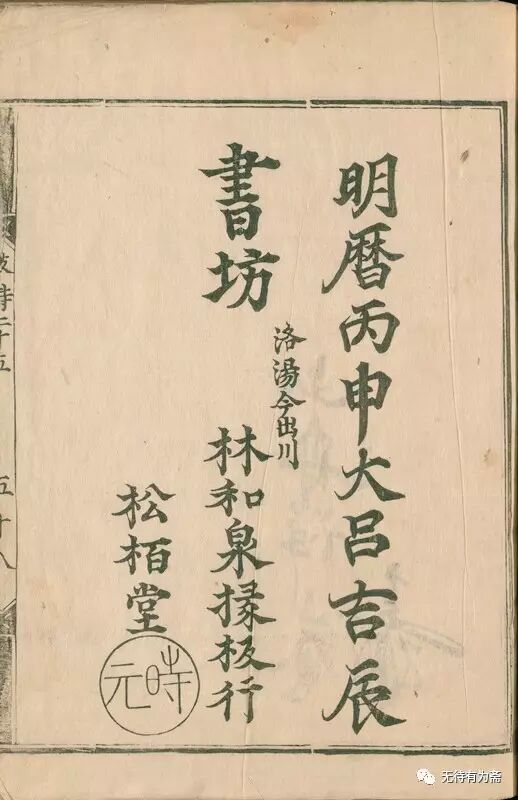 明暦丙申大呂吉辰
書坊
洛湯今出川
林和泉掾板行
松栢堂
時元
五十八
无待有为斋